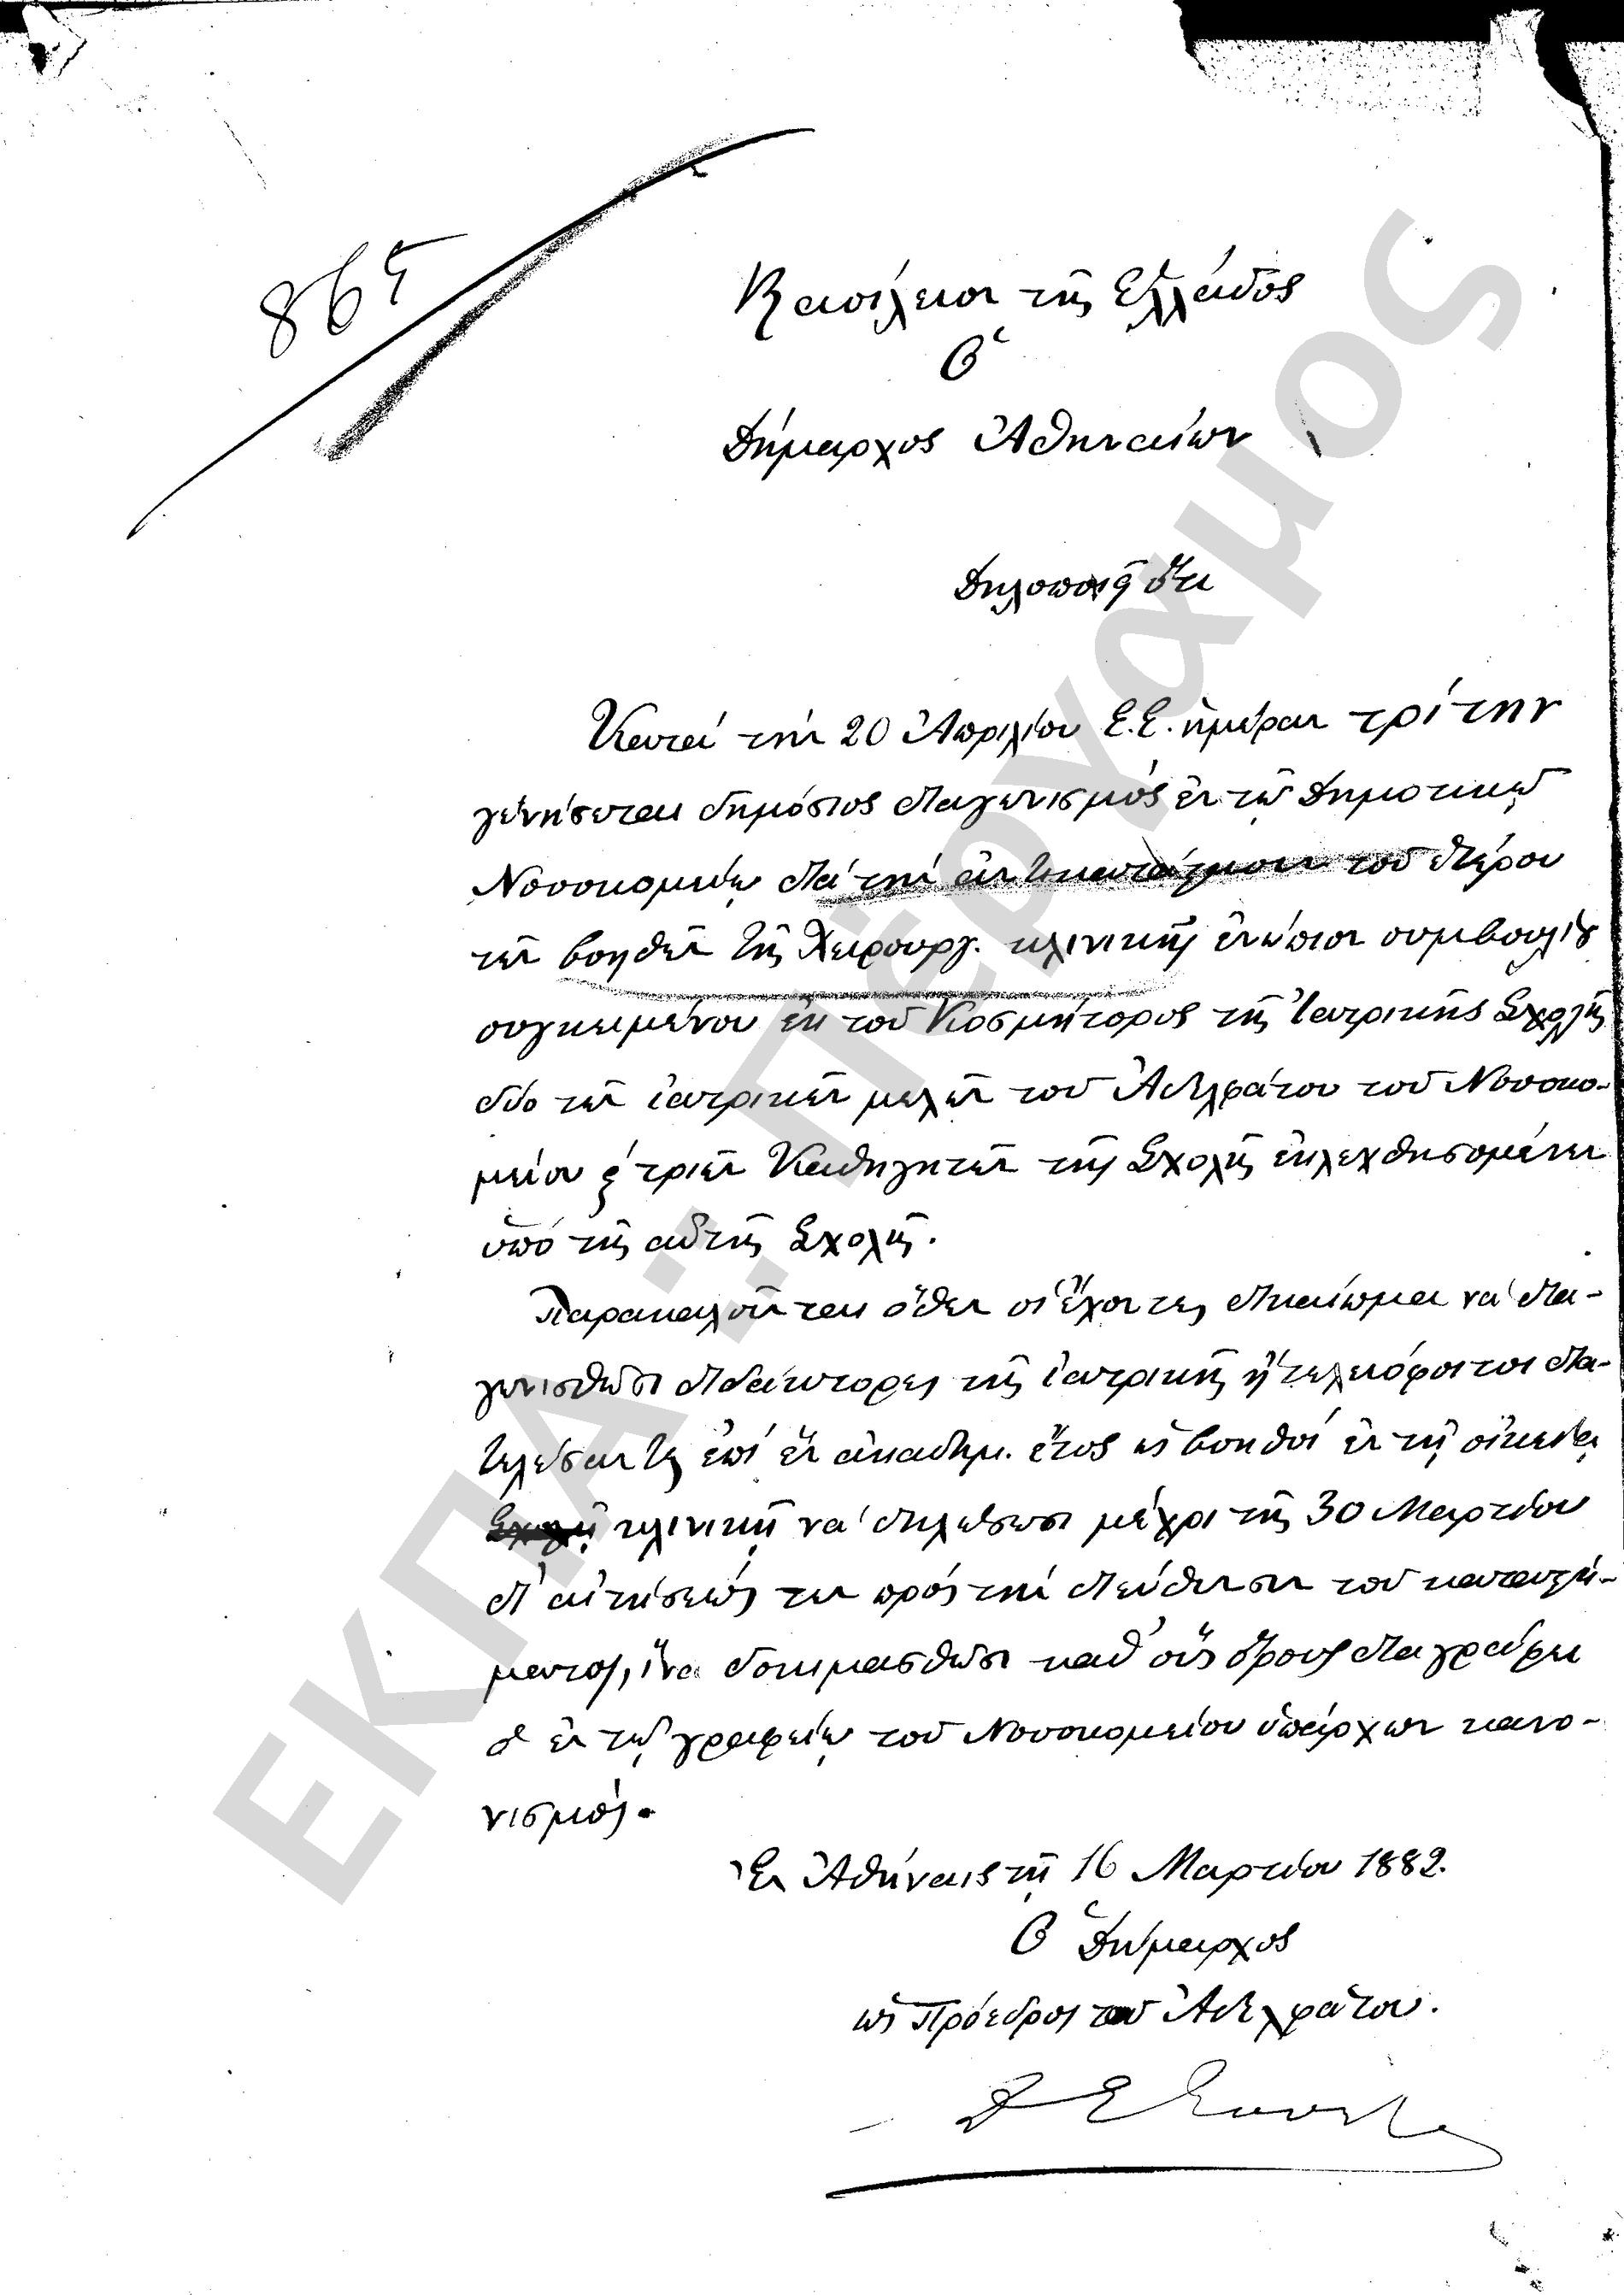 865
Βασίλειον τῆς Ἑλλάδος
Ὁ
Δήμαρχος Ἀθηναίων
Δηλοποιεῖ ὅτι
Κατὰ τὴν 20 Ἀπριλίου ἐ.ἔ. ἡμέραν τρίτην
γενήσεται δημόσιος διαγωνισμὸς ἐν τῷ Δημοτικῷ
Νοσοκομείῳ διὰ τὴν ἀντικατάστασιν τοῦ ἑτέρου
τῶν βοηθῶν τῆς Χειρουργ. κλινικῆς ἐνώπιον συμβουλίου
συγκειμένου ἐκ τοῦ Κοσμήτορος τῆς Ἰατρικῆς Σχολῆς
δύο τῶν ἰατρικῶν μελῶν τοῦ Ἀδελφάτου τοῦ Νοσοκο-
μείου ϗ τριῶν Καθηγητῶν τῆς Σχολῆς ἐκλεχθησομένων
ὑπὸ τῆς αὐτῆς Σχολῆς.
Παρακαλοῦνται ὅθεν οἱ ἔχοντες δικαίωμα νὰ δια-
γωνισθῶσι διδάκτορες τῆς ἰατρικῆς ἢ τελειόφοιτοι δια-
τελέσαντες ἐπὶ ἓν ἀκαδημ. ἔτος ὡς βοηθοί ἐν τῇ οἰκείᾳ
Σχολῇ κλινικῇ νὰ δηλώσωσι μέχρι τῆς 30 Μαρτίου
δι' αἰτήσεώς των πρὸς τὴν διεύθυνσιν τοῦ καταστή-
ματος, ἵνα δοκιμασθῶσι καθ' οὓς ὅρους διαγράφει
ὁ ἐν τῷ γραφείῳ τοῦ Νοσοκομείου ὑπάρχων κανο-
νισμός.
Ἐν Ἀθήναις τῇ 16 Μαρτίου 1882.
Ὁ Δήμαρχος
ὡς Πρόεδρος τοῦ Ἀδελφάτου.
ΕΚΠΑ :: Πέργαμος